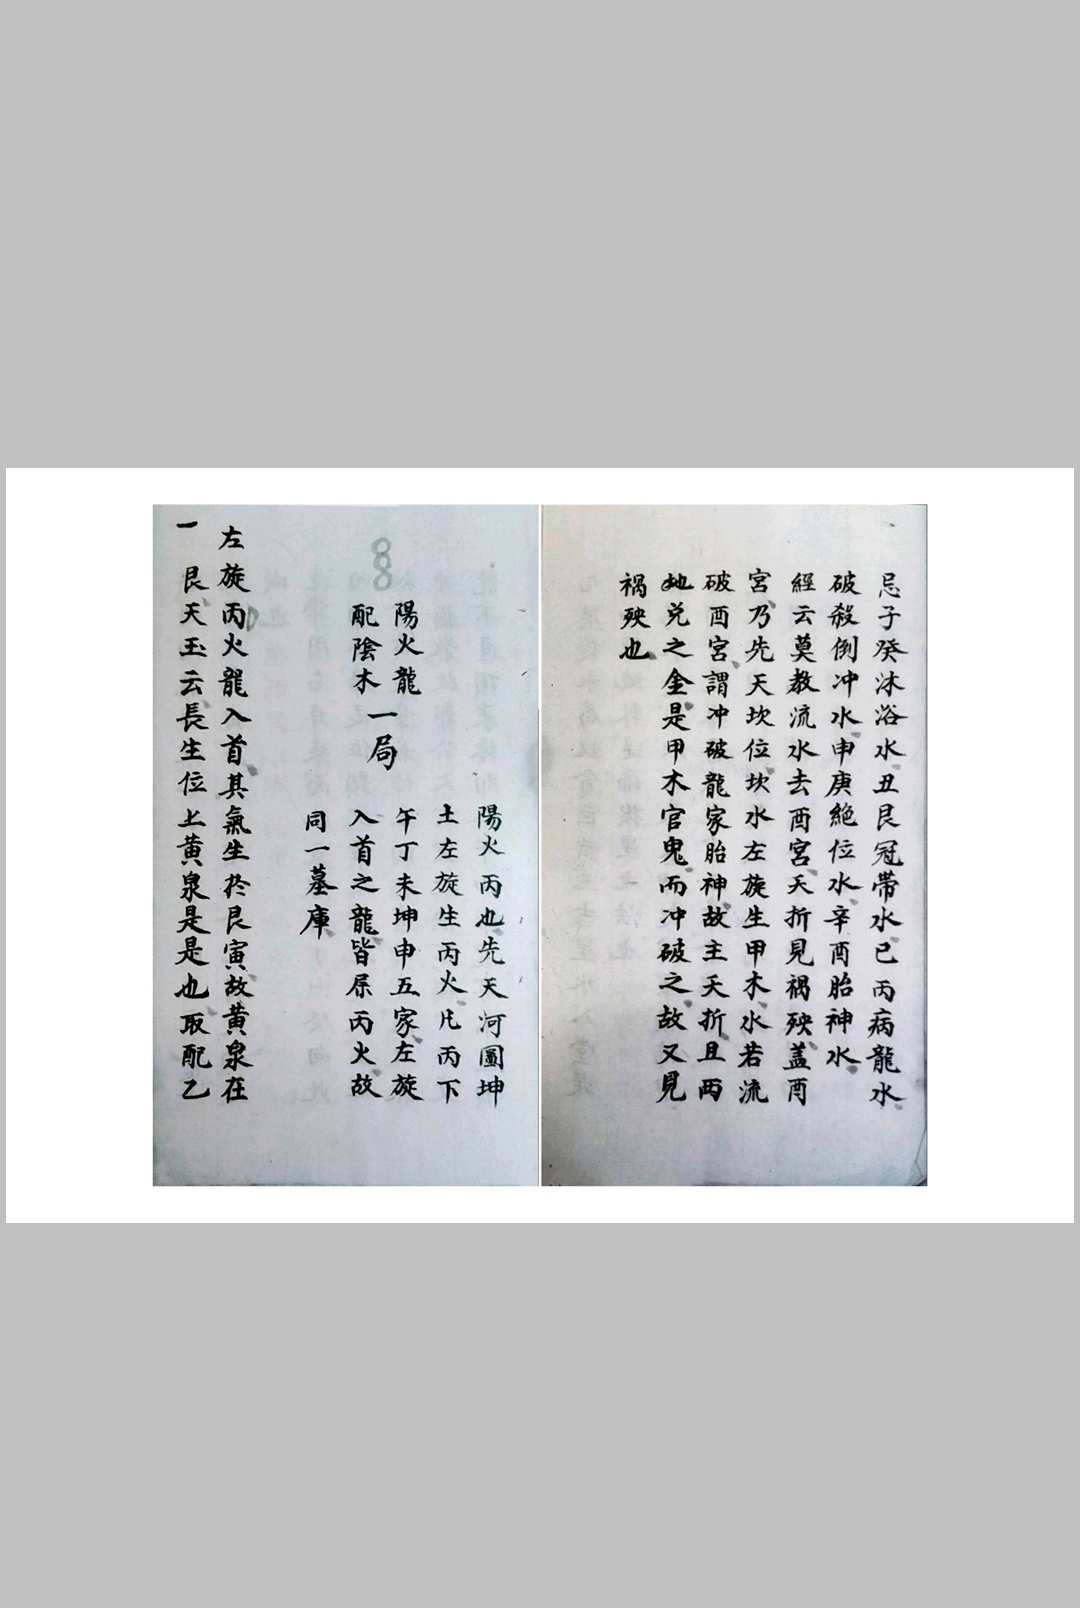 忌子癸沐浴水丑艮冠帶水巳丙病龍水
破殺倒冲水申庚絕位水辛酉胎神水
經云莫教流水去酉宮夭折見禍殃盖酉
宮乃先天坎位坎水左旋生甲木水若流
破酉宮謂冲破龍家胎神故主夭折且两
地兑之金是甲木官鬼而冲破之故又見
禍殃也
陽火丙也先天河圖坤
土左旋生丙火凡丙下
陽火龍
午丁未坤申五家左旋
配陰木
一局
入首之龍皆屬丙火故
同一墓庫
左旋丙火龍入首其氣生於艮寅故黄泉在
一艮天玉云長生位上黄泉是是也取配乙